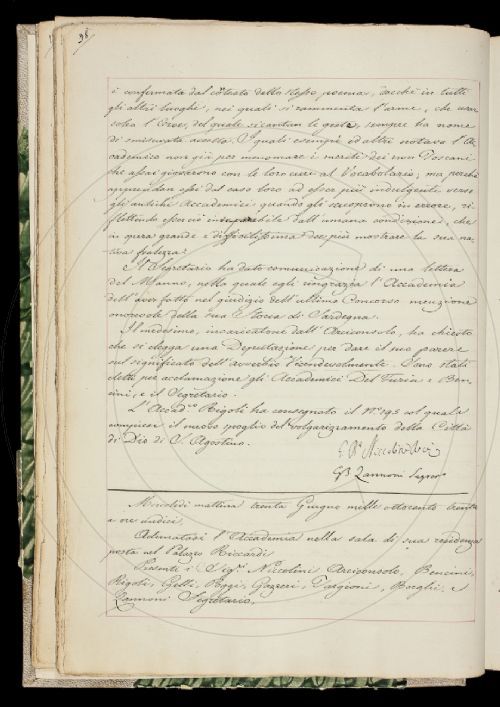 98
è confermata dal contesto dello stesso poema, dacchè in tutti
gli altri luoghi, nei quali si rammenta l'arme, che usar
solea l'Eroe, del quale si cantan le gesta, sempre ha nome
di smisurata accetta. I quali esempj ed altri notava l'Ac-
cademico non già per menomare i meriti dei suoi Toscani
che assai giovarono con le loro cure al Vocabolario; ma perchè
apprendan essi dal caso loro ad esser più indulgenti verso
gli antichi Accademici, quando gli scuoprono in errore, ri-
flettendo esser ciò inseparabile dall'umana condizione, che
in opera grande e difficilissima dee più mostrare la sua na-
tiva fralezza.
Il Segretario ha dato comunicazione di una lettera
del Manno, nella quale egli ringrazia l'Accademia
dell'aver fatto nel giudizio dell'ultimo Concorso menzione
onorevole della sua Storia di Sardegna.
Il medesimo, incaricatone dall'Arciconsolo, ha chiesto
che si elegga una Deputazione per dare il suo parere
sul significato dell'avverbio Vicendevolmente. Sono stati
eletti per acclamazione gli Accademici Del Furia e Ben-
cini, e il Segretario.
L'Accad.co Rigoli ha consegnato il N.o 195 al quale
complisce il nuovo spoglio del volgarizzamento della Città
di Dio di S. Agostino.
G. B.a Niccolini
GB Zannoni Segret.o
Mercoledì mattina trenta Giugno mille ottocento trenta
a ore undici.
Adunatasi l'Accademia nella sala di sua residenza
posta nel Palazzo Riccardi
Presenti i Sig.ri Niccolini Arciconsolo, Bencini,
Rigoli, Gelli, Poggi, Gazzeri, Targioni, Borghi, e
Zannoni Segretario.